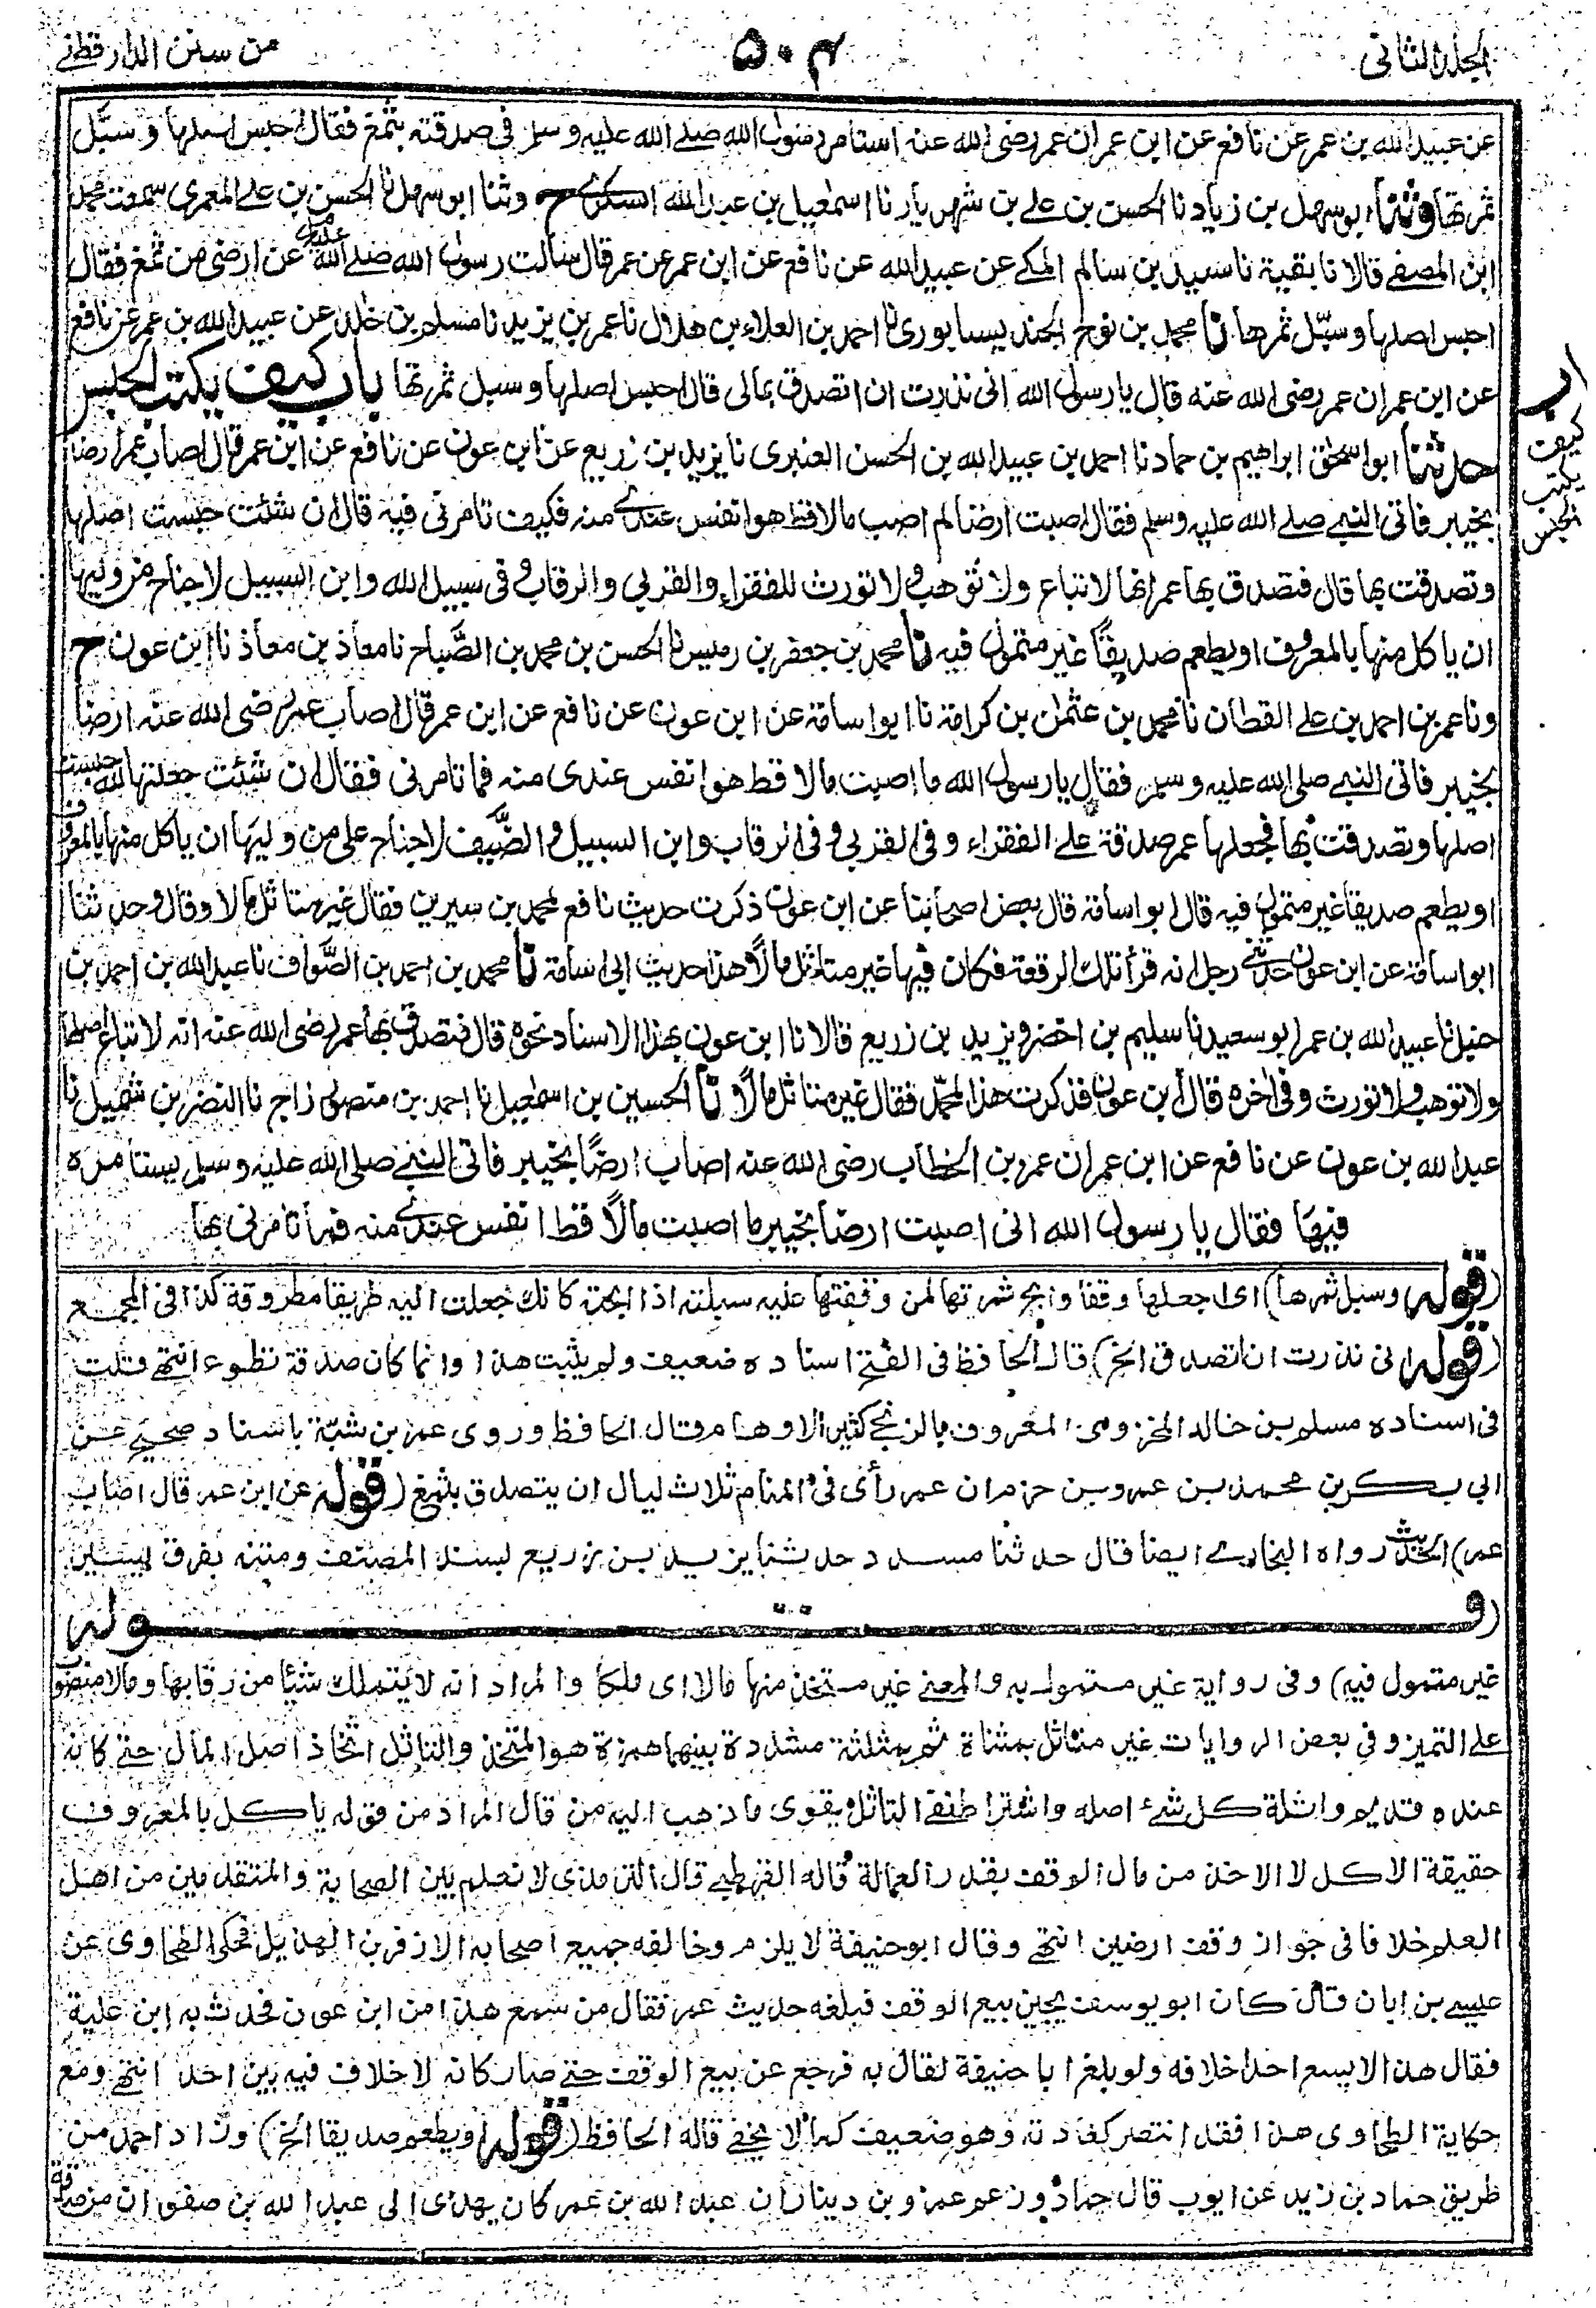 المجلد الثاني
٥٠٤
من سنن الدارقطني
عن عبيد الله بن عمر عن نافع عن ابن عمر ان عمر رضى الله عنه استامر رسول الله صلى الله عليه وسلم فى صدقته بثمغ فقال احبس اصلها وسبّل
ثمرتها وثنا ابو سهل بن زياد نا الحسن بن على بن شهريار نا اسمعيل بن عبد الله السكرى ح وثنا ابو سهل نا الحسن بن على المعمرى سمعت محمد
ابن المصفى قالا نا بقية نا سعيد بن سالم المكى عن عبيد الله عن نافع عن ابن عمر عن عمر قال سالت رسول الله صلى الله عليه وسلم عن ارضى من ثمغ فقال
احبس اصلها وسبّل ثمرها نا محمد بن نوح الجنديسابورى نا احمد بن العلاء بن هلال نا عمر بن يزيد نا مسلم بن خلد عن عبيد الله بن عمر عن نافع
عن ابن عمر ان عمر رضى الله عنه قال يا رسول الله انى نذرت ان اتصدق بمالى قال احبس اصلها وسبل ثمرتها باب كيف يكتب الحبس
باب
كيف
يكتب
الحبس
حدثنا ابو اسحق ابراهيم بن حماد نا احمد بن عبيد الله بن الحسن العنبرى نا يزيد بن زريع عن ابن عون عن نافع عن ابن عمر قال اصاب عمر ارضا
بخيبر فاتى النبى صلى الله عليه وسلم فقال اصبت ارضا لم اصب مالا قط هو انفس عندى منه فكيف تامرنى فيه قال ان شئت حبست اصلها
وتصدقت بها قال فتصدق بها عمر انها لا تباع ولا توهب ولا تورث للفقراء والقربى والرقاب وفى سبيل الله وابن السبيل لا جناح من وليها
ان ياكل منها بالمعروف او يطعم صديقًا غير متمول فيه نا محمد بن جعفر بن رميس نا الحسن بن محمد بن الصَّباح نا معاذ بن معاذ نا ابن عون ح
ونا عمر بن احمد بن على القطان نا محمد بن عثمن بن كرامة نا ابو اسامة عن ابن عون عن نافع عن ابن عمر قال اصاب عمر رضى الله عنه ارضا
بخيبر فاتى النبى صلى الله عليه وسلم فقال يا رسول الله ما اصبت مالا قط هو انفس عندى منه فما تامرنى فقال ان شئت جعلتها لله حبست
اصلها وتصدقت بها فجعلها عمر صدقة على الفقراء وفى القربى وفى الرقاب وابن السبيل والضَّيف لا جناح على من وليها ان ياكل منها بالمعروف
او يطعم صديقا غير متمول فيه قال ابو اسامة قال بعض اصحابنا عن ابن عون ذكرت حديث نافع لمحمد بن سيرين فقال غير متاثل مالا وقال وحدثنا
ابو اسامة عن ابن عون حدثنى رجل انه قرأ تلك الرقعة فكان فيها غير متاثل مالًا وهذا حديث ابى اسامة نا محمد بن احمد بن الصَّواف نا عبد الله بن احمد بن
حنبل نا عبيد الله بن عمر ابو سعيد نا سليم بن اخضر ويزيد بن زريع قالا نا ابن عون بهذا الاسناد نحوه قال فتصدق بها عمر رضى الله عنه انه لا تباع اصلها
ولا توهب ولا تورث وفى اخره قال ابن عون فذكرت هذا لمحمّد فقال غير متاثل مالًا ونا الحسين بن اسمعيل نا احمد بن منصور زاج نا النضر بن شميل نا
عبد الله بن عون عن نافع عن ابن عمر ان عمر بن الخطاب رضى الله عنه اصاب ارضًا بخيبر فاتى النبى صلى الله عليه وسلم يستامره
فيها فقال يا رسول الله انى اصبت ارضا بخيبر ما اصبت مالًا قط انفس عندى منه فما تامرنى بها
(قوله وسبل ثمرها) اى اجعلها وقفا وابح ثمرتها لمن وقفتها عليه سبلته اذا ابحته كانك جعلت اليه طريقا مطروقة كذا فى المجمع
(قوله انى نذرت ان اتصدق الخ) قال الحافظ فى الفتح اسناده ضعيف ولم يثبت هذا وانما كان صدقة تطوع انتهى قلت
فى اسناده مسلم بن خالد المخزومى المعروف بالزنجى كثير الاوهام وقال الحافظ وروى عمر بن شبّة باسناد صحيح عن
ابى بكر بن محمد بن عمرو بن حزم ان عمر رأى فى المنام ثلاث ليال ان يتصدق بثمغ (قوله عن ابن عمر قال اصاب
عمر) الحديث رواه البخارى ايضا قال حدثنا مسدد حدثنا يزيد بن زريع بسند المصنف ومتنه بفرق يسير
(قوله
غير متمول فيه) وفى رواية غير متمول به والمعنى غير متخذ منها مالا اى ملكا والمراد انه لا يتملك شيئا من رقابها ومالا منصوب
على التميز وفى بعض الروايات غير متاثل بمثناة ثم بمثلثة مشددة بينهما همزة هو المتخذ والتاثل اتخاذ اصل المال حتى كانه
عنده قديم واثلة كل شئ اصله واشتراط نفى التاثل يقوى ما ذهب اليه من قال المراد من قوله ياكل بالمعروف
حقيقة الاكل لا الاخذ من مال الوقف بقدر العمالة قاله القرطبى قال الترمذى لا نعلم بين الصحابة والمتقدمين من اهل
العلم خلافا فى جواز وقف ارضين انتهى وقال ابو حنيفة لا يلزم وخالفه جميع اصحابه الا زفر بن الهذيل فحكى الطحاوى عن
عيسى بن ابان قال كان ابو يوسف يجيز بيع الوقف فبلغه حديث عمر فقال من سمع هذا من ابن عون فحدث به ابن علية
فقال هذا لا يسع احدا خلافه ولو بلغ ابا حنيفة لقال به فرجع عن بيع الوقف حتى صار كانه لا خلاف فيه بين احد انتهى ومع
حكاية الطحاوى هذا فقد انتصر كعادته وهو ضعيف كما لا يخفى قاله الحافظ (قوله او يطعم صديقا الخ) وزاد احمد من
طريق حماد بن زيد عن ايوب قال حماد وزعم عمرو بن دينار ان عبد الله بن عمر كان يهدى الى عبد الله بن صفوان من صدقة